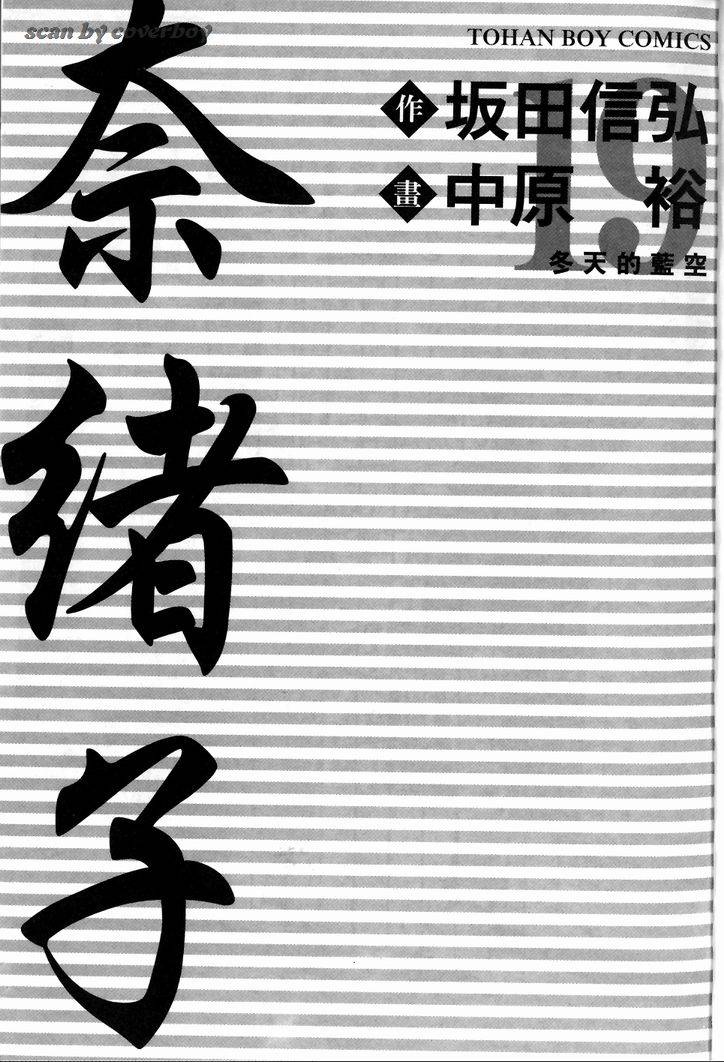 scan by coverboy
TOHAN BOY COMICS
作 坂田信弘
畫 中原 裕
19
冬天的藍空
奈緒子